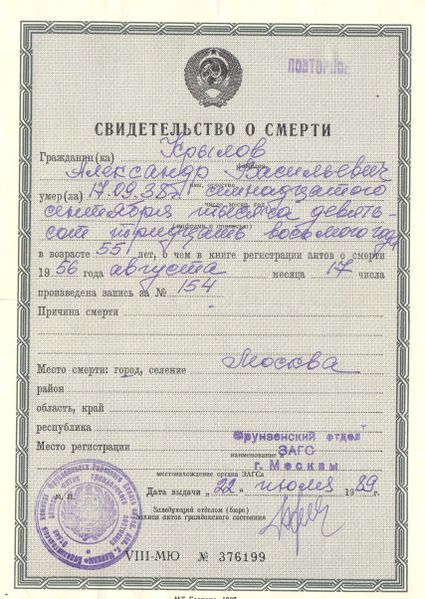 ПОВТОРНОЕ
СВИДЕТЕЛЬСТВО О СМЕРТИ
Гражданин(ка) Крылов
фамилия
Александр Васильевич
имя, отчество
умер(ла) 17.09.38г. семнадцатого
число, месяц, год
сентября тысяча девять-
(цифрами и прописью)
сот тридцать восьмого года
в возрасте 55 лет, о чем в книге регистрации актов о смерти
1956 года августа месяца 17 числа
произведена запись за № 154
Причина смерти -
Место смерти: город, селение Москва
район
область, край
республика
Место регистрации Фрунзенский отдел
наименование и
ЗАГС
г. Москвы
местонахождение органа ЗАГСа
М. П.
Дата выдачи „22" июля 1989г.
Заведующий отделом (бюро)
записи актов гражданского состояния
VIII-МЮ № 376199